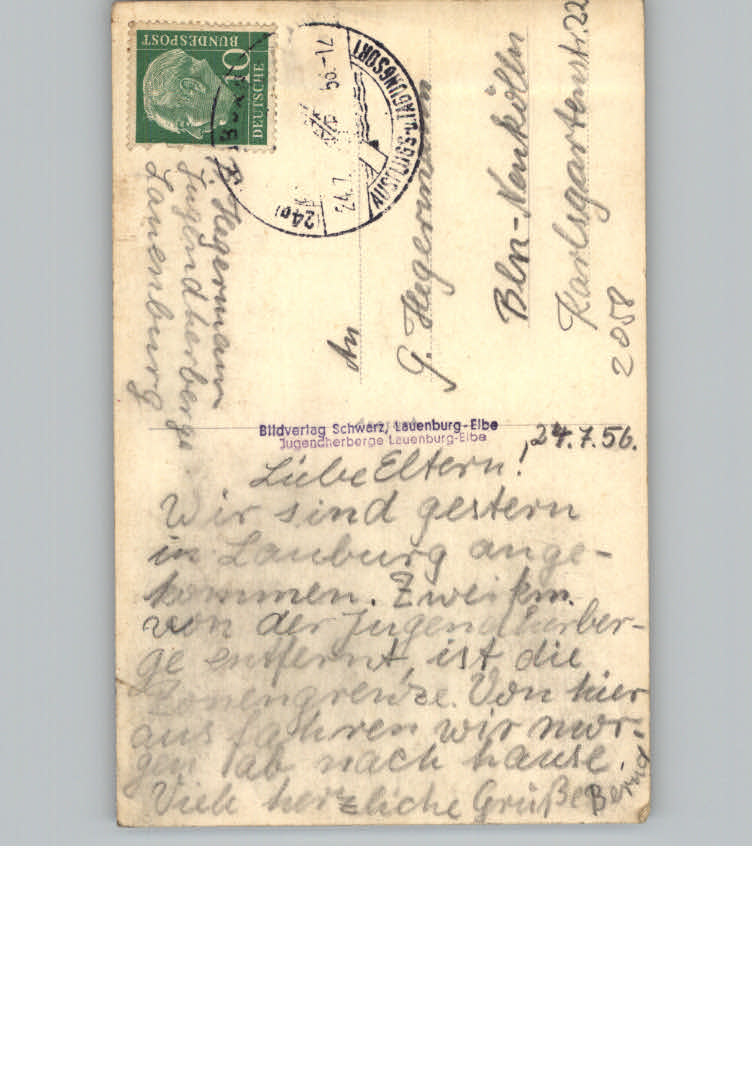 DEUTSCHE
BUNDESPOST
10
AUSFLUGS- u. TAGUNGSORT
24.7. 56.-12
(24a)
Hegermann
Jugendherberge
Lauenburg
An
G. Hegermann
Bln-Neukölln
Karlsgartenstr. 22
2058
Bildverlag Schwarz, Lauenburg-Elbe
Jugendherberge Lauenburg-Elbe
24.7.56.
Liebe Eltern!
Wir sind gestern
in Lauburg ange-
kommen. Zwei km.
von der Jugendherber-
ge entfernt, ist die
Zonengrenze. Von hier
aus fahren wir mor-
gen ab nach hause.
Viele herzliche Grüße Bernd